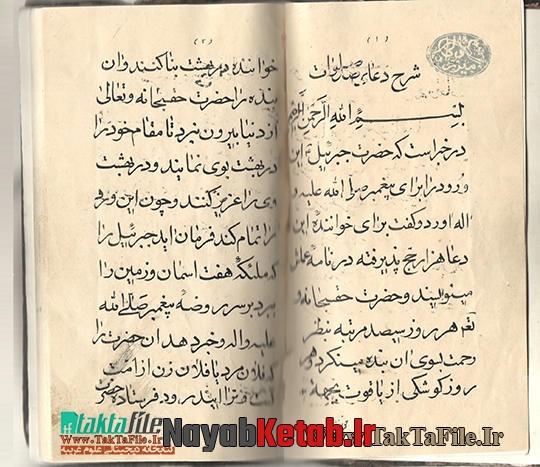 (۱)
شرح دعاء صلوات
بسم الله الرحمن الرحیم
در خبر است که حضرت جبرئیل این
ورود را برای پیغمبر صلی الله علیه و
اله اورد و گفت برای خوانندهٔ این
دعا هزار حج پذیرفته در نامه عملش
مینویسند و حضرت حقسبحانه و
تعم هر روز سیصد مرتبه نظر
رحمت بسوی ان بنده میکرد و هر
روز کوشکی از یاقوت بجهة
(۲)
خواننده در بهشت بنا کنند و ان
بنده را حضرت حقسبحانه و تعالی
از دنیا بیرون نبرد تا مقام خود را
در بهشت بوی نمایند و در بهشت
وی را عزیز کنند و چون این ورد
را تمام کند فرمان اید جبرئیل را
که ملئکهٔ هفت اسمان و زمین را
ببرد بر سر روضهٔ پیغمبر صلی الله
علیه واله و خبر دهد ان حضرت را
که فلان مرد یا فلان زن از امت
فرستاده حضرت
taktafile
www.TakTaFile.Ir
NayabKetab.Ir
www.TakTaFile.Ir